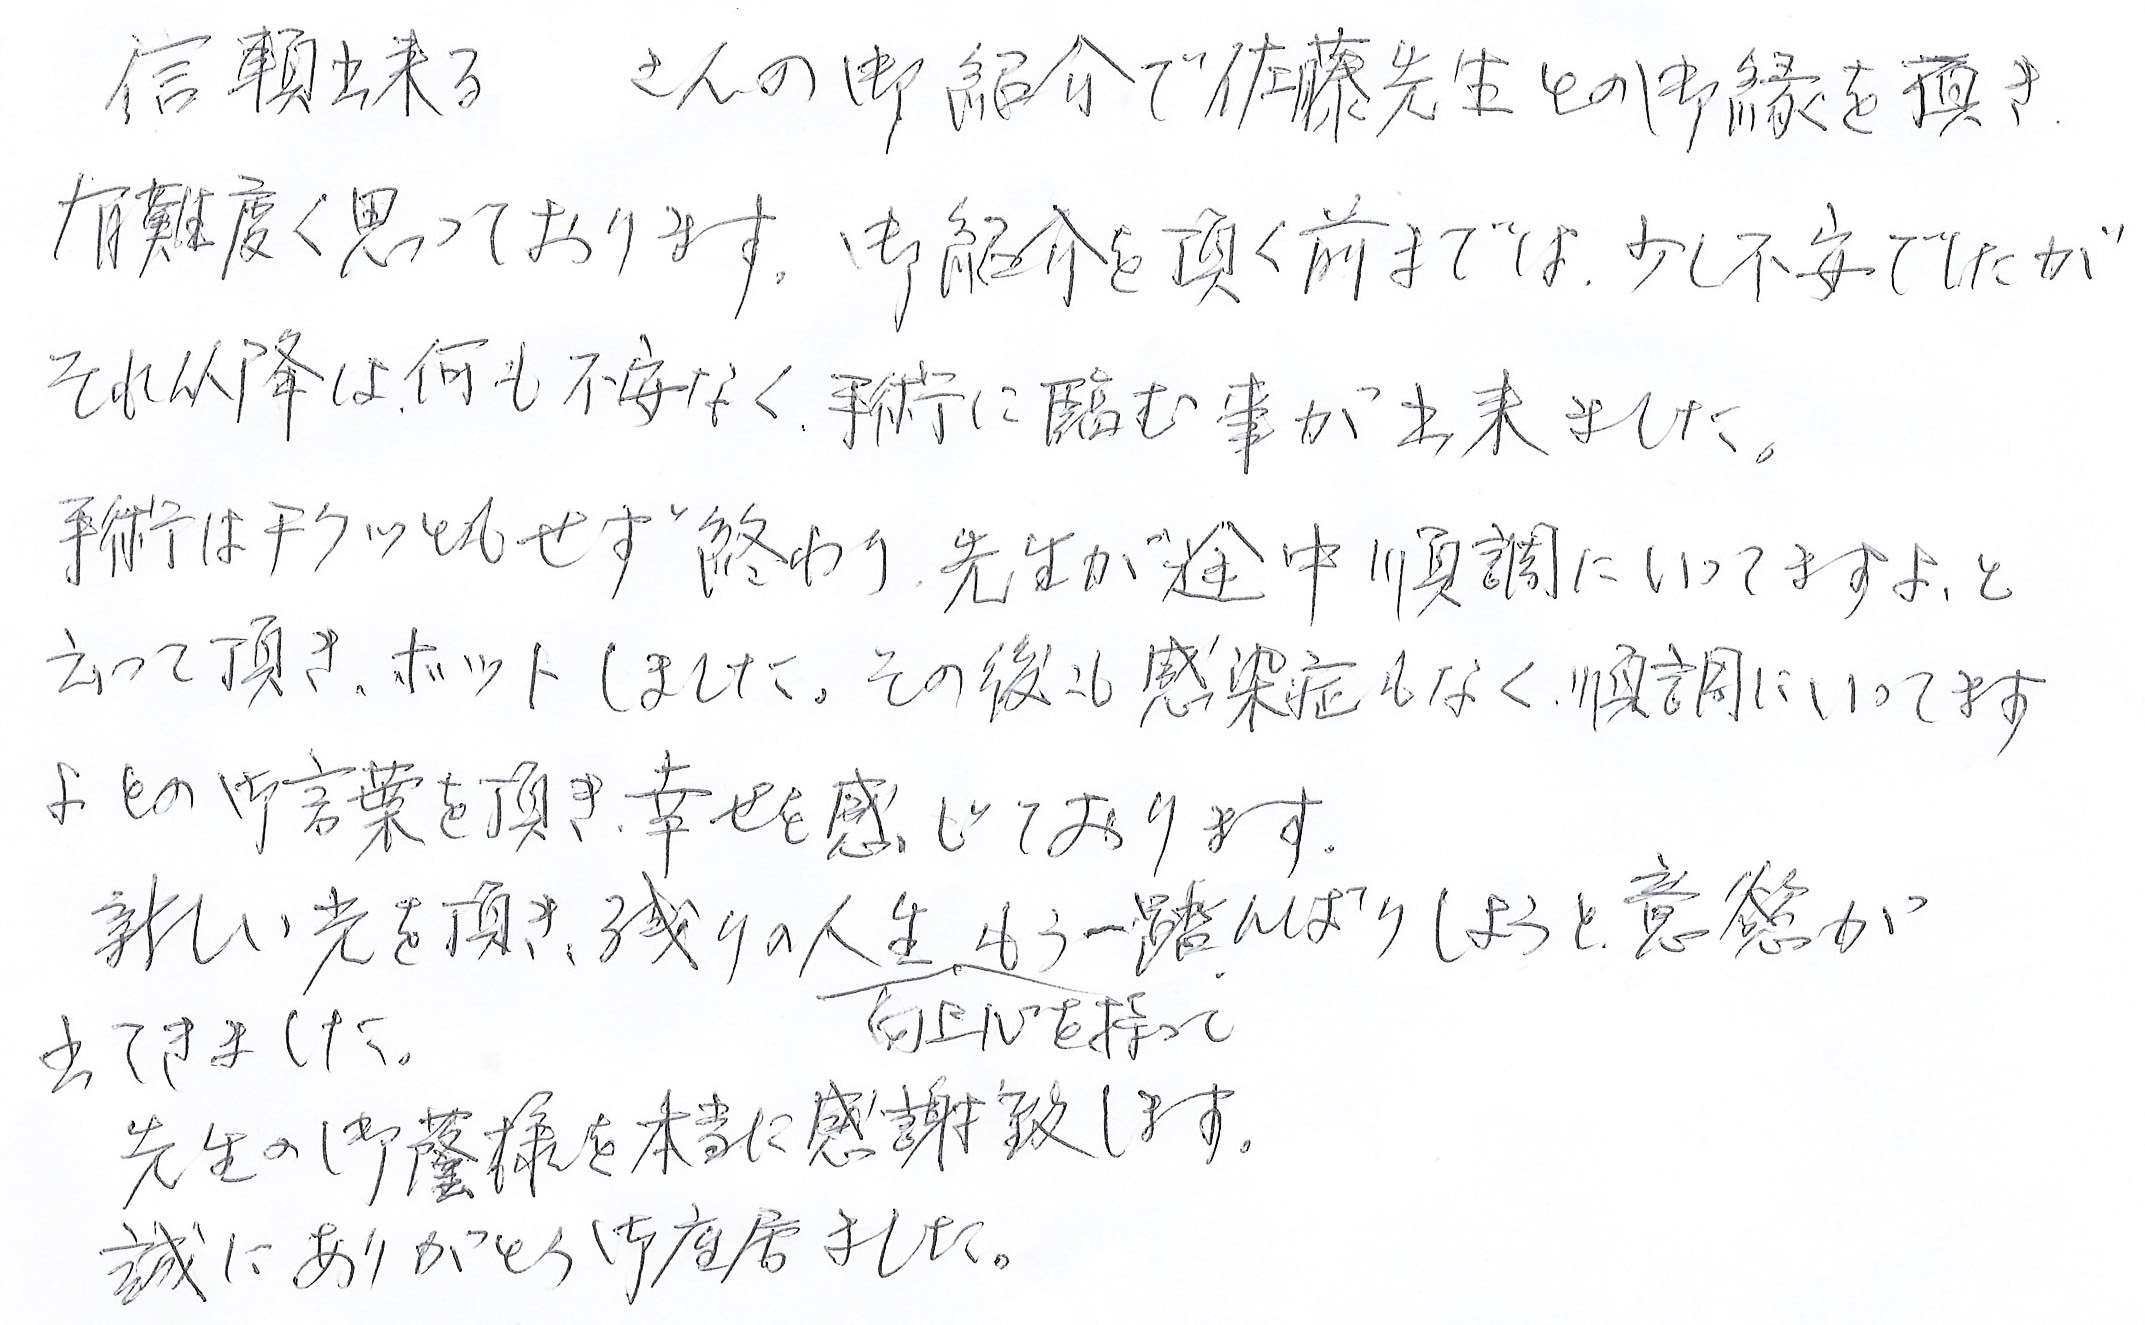 信頼出来る　　さんの御紹介で佐藤先生との御縁を頂き
有難度く思っております。御紹介を頂く前までは、少し不安でしたが
それ以降は、何も不安なく、手術に臨む事が出来ました。
手術はチクッともせず終わり、先生が途中順調にいってますよ、と
云って頂き、ホットしました。その後も感染症もなく、順調にいってます
よとの御言葉を頂き、幸せを感じております。
新しい光を頂き、残りの人生、もう一踏んばりしようと、意慾が
向上心を持って
出てきました。
先生の御蔭様を本当に感謝致します。
誠にありがとう御座居ました。